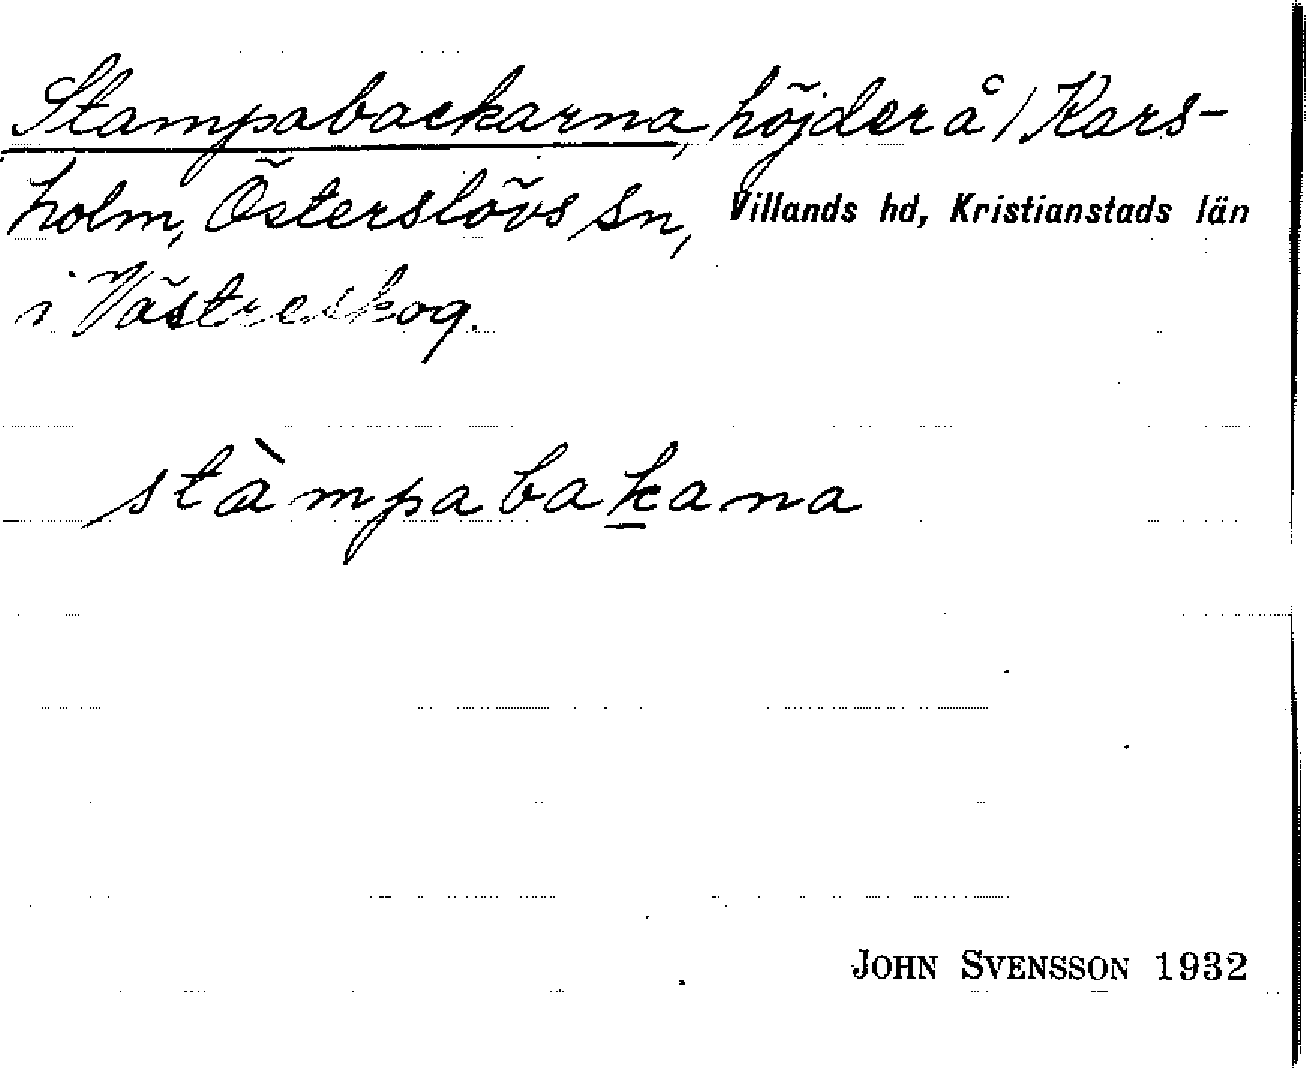 Stampabackarna, höjder å 1 Kars-
holm, Österslövs sn, Villands hd, Kristianstads län
i Västreskog.
stàmpabakana
JOHN SVENSSON 1932